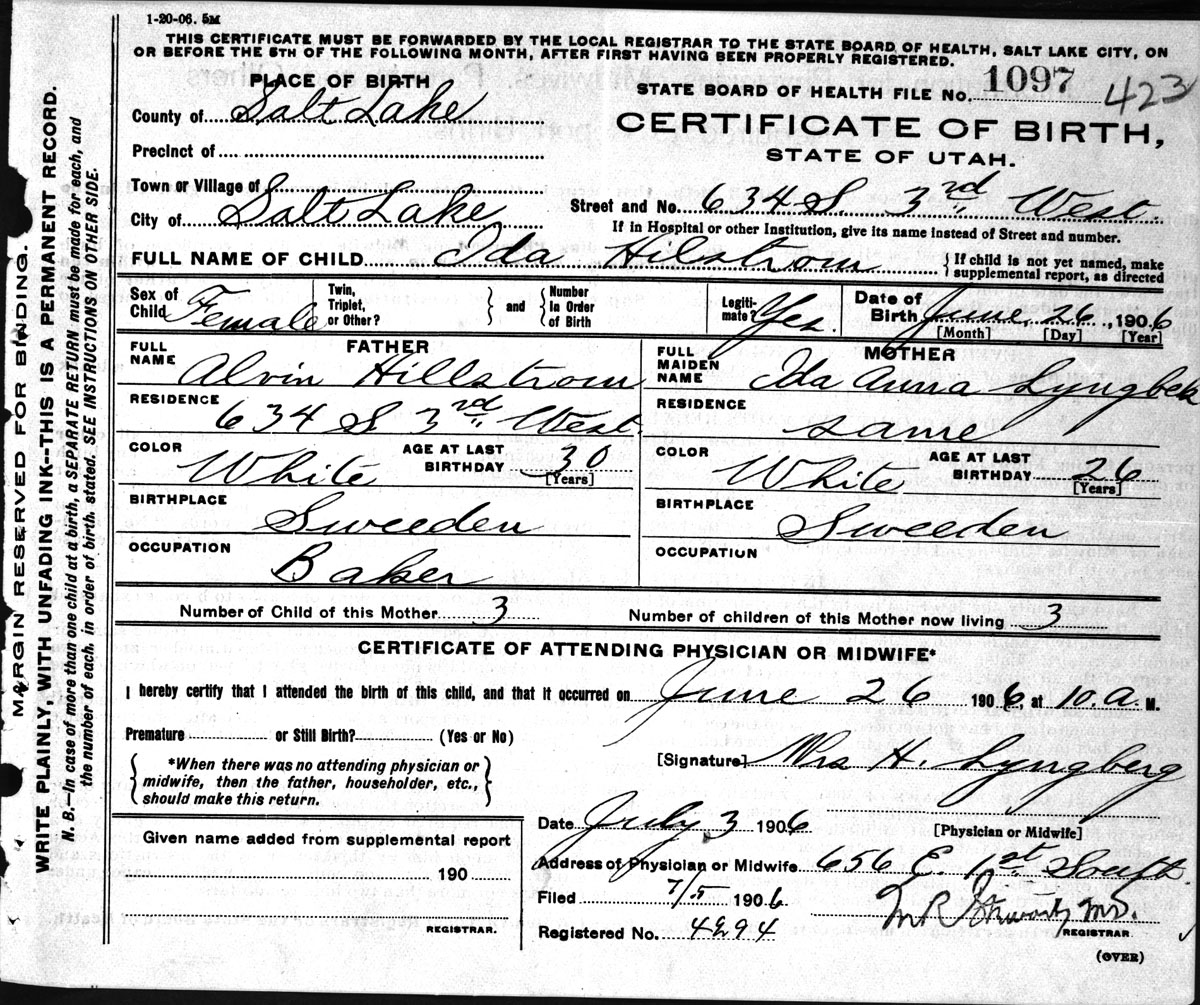 1-20-06. 5M
THIS CERTIFICATE MUST BE FORWARDED BY THE LOCAL REGISTRAR TO THE STATE BOARD OF HEALTH, SALT LAKE CITY, ON
OR BEFORE THE 5TH OF THE FOLLOWING MONTH, AFTER FIRST HAVING BEEN PROPERLY REGISTERED.
PLACE OF BIRTH
STATE BOARD OF HEALTH FILE No. 1097 423
County of Salt Lake
CERTIFICATE OF BIRTH,
STATE OF UTAH.
Precinct of
Town or Village of
City of Salt Lake
Street and No. 634 S. 3rd West.
If in Hospital or other Institution, give its name instead of Street and number.
FULL NAME OF CHILD Ida Hilstrom { If child is not yet named, make
supplemental report, as directed
Sex of Child Female
Twin, Triplet, or Other? } and { Number In Order of Birth
Legitimate? Yes.
Date of Birth June, 26, 1906
[Month] [Day] [Year]
FATHER
FULL NAME Alvin Hillstrom
RESIDENCE 634 S 3rd West.
COLOR White AGE AT LAST BIRTHDAY 30
[Years]
BIRTHPLACE Sweeden
OCCUPATION Baker
MOTHER
FULL MAIDEN NAME Ida Anna
RESIDENCE same
COLOR White AGE AT LAST BIRTHDAY 26
[Years]
BIRTHPLACE Sweeden
OCCUPATION
Number of Child of this Mother 3 Number of children of this Mother now living 3
CERTIFICATE OF ATTENDING PHYSICIAN OR MIDWIFE*
I hereby certify that I attended the birth of this child, and that it occurred on June 26 1906. at 10. a M.
Premature or Still Birth? (Yes or No)
{ *When there was no attending physician or
midwife, then the father, householder, etc.,
should make this return. }
[Signature] Mrs H. Lyngberg
[Physician or Midwife]
Date July 3 1906
Address of Physician or Midwife 656 E. 1st South.
Filed 7/5 1906
Registered No. 4294
M.D.
REGISTRAR.
(OVER)
Given name added from supplemental report
190
REGISTRAR.
MARGIN RESERVED FOR BINDING.
WRITE PLAINLY, WITH UNFADING INK--THIS IS A PERMANENT RECORD.
N. B.—In case of more than one child at a birth, a SEPARATE RETURN must be made for each, and
the number of each, in order of birth, stated. SEE INSTRUCTIONS ON OTHER SIDE.